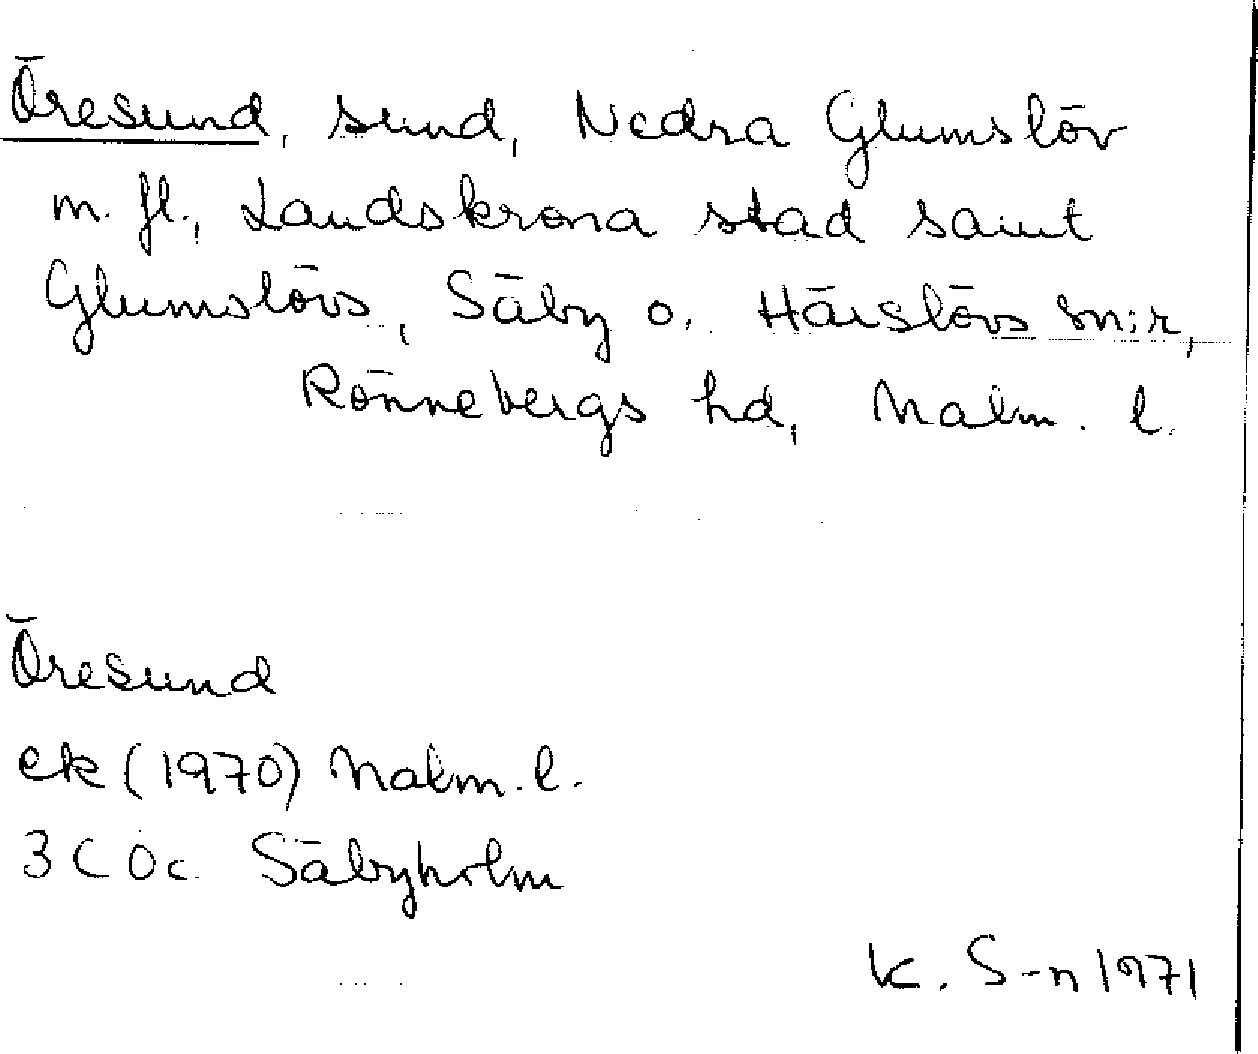 Öresund, sund, Nedra Glumslöv
m. fl., Landskrona stad samt
Glumslövs, Säby o. Härslövs sn:r,
Rönnebergs hd, Malm. l.
Öresund
ek (1970) Malm. l.
3 C 0c Säbyholm
K. S-n 1971